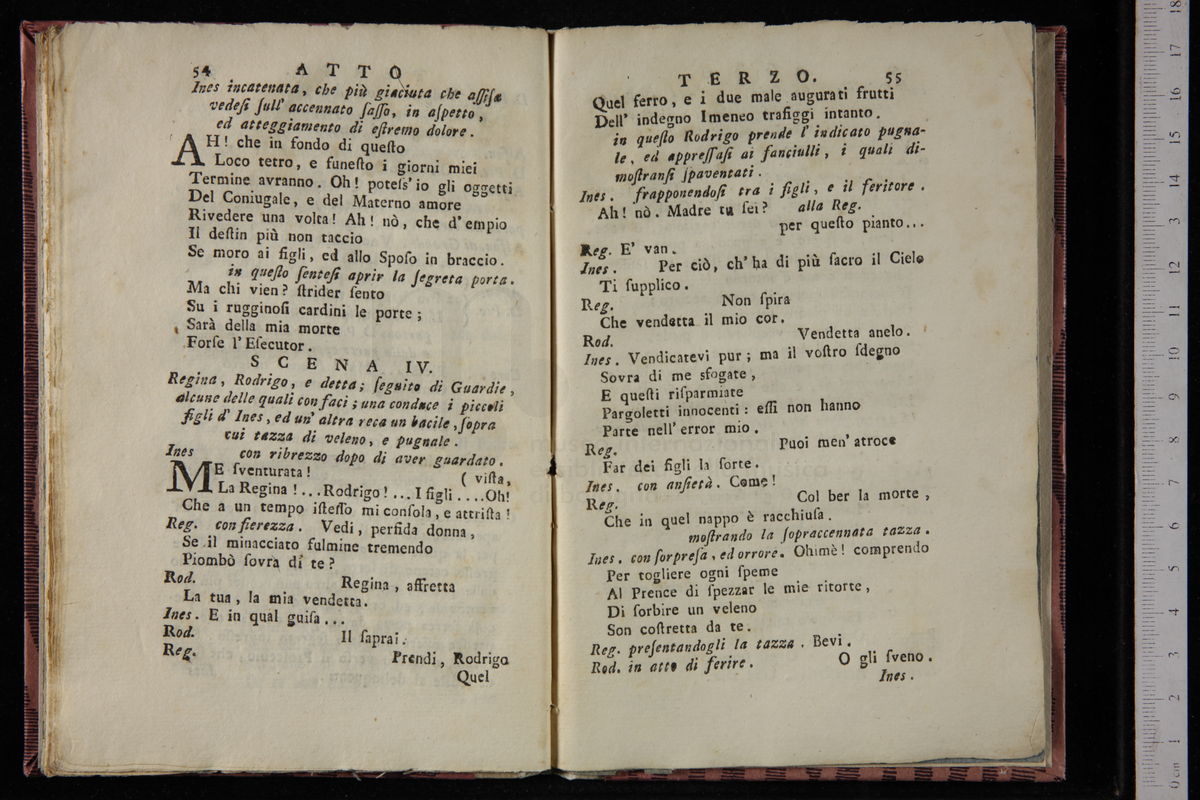 54 ATTO
Ines incatenata, che più giaciuta che aſſiſa
vedeſi ſull' accennato ſaſſo, in aſpetto,
ed atteggiamento di eſtremo dolore.
AH! che in fondo di queſto
Loco tetro, e funeſto i giorni miei
Termine avranno. Oh! poteſs'io gli oggetti
Del Coniugale, e del Materno amore
Rivedere una volta! Ah! nò, che d'empio
Il deſtin più non taccio
Se moro ai figli, ed allo Spoſo in braccio.
in queſto ſenteſi aprir la ſegreta porta.
Ma chi vien? ſtrider ſento
Su i rugginoſi cardini le porte;
Sarà della mia morte
Forſe l'Eſecutor.
SCENA IV.
Regina, Rodrigo, e detta; ſeguito di Guardie,
alcune delle quali con faci; una conduce i piccoli
figli d' Ines, ed un' altra reca un bacile, ſopra
cui tazza di veleno, e pugnale.
Ines con ribrezzo dopo di aver guardato.
ME ſventurata! ( viſta,
La Regina!...Rodrigo!... I figli....Oh!
Che a un tempo iſteſſo mi conſola, e attriſta!
Reg. con fierezza. Vedi, perfida donna,
Se il minacciato fulmine tremendo
Piombò ſovra di te?
Rod. Regina, affretta
La tua, la mia vendetta.
Ines. E in qual guiſa...
Rod. Il ſaprai.
Reg. Prendi, Rodrigo
Quel
TERZO. 55
Quel ferro, e i due male augurati frutti
Dell' indegno Imeneo trafiggi intanto.
in queſto Rodrigo prende l' indicato pugna-
le, ed appreſſaſi ai fanciulli, i quali di-
moſtranſi ſpaventati.
Ines. frapponendoſi tra i figli, e il feritore.
Ah! nò. Madre tu ſei? alla Reg.
per queſto pianto...
Reg. E' van.
Ines. Per ciò, ch'ha di più ſacro il Cielo
Ti ſupplico.
Reg. Non ſpira
Che vendetta il mio cor.
Rod. Vendetta anelo.
Ines. Vendicatevi pur; ma il voſtro ſdegno
Sovra di me sfogate,
E queſti riſparmiate
Pargoletti innocenti: eſſi non hanno
Parte nell' error mio.
Reg. Puoi men' atroce
Far dei figli la ſorte.
Ines. con anſietà. Come!
Reg. Col ber la morte,
Che in quel nappo è racchiuſa.
moſtrando la ſopraccennata tazza.
Ines. con ſorpreſa, ed orrore. Ohimè! comprendo
Per togliere ogni ſpeme
Al Prence di ſpezzar le mie ritorte,
Di ſorbire un veleno
Son coſtretta da te.
Reg. preſentandogli la tazza. Bevi.
Rod. in atto di ferire. O gli ſveno.
Ines.